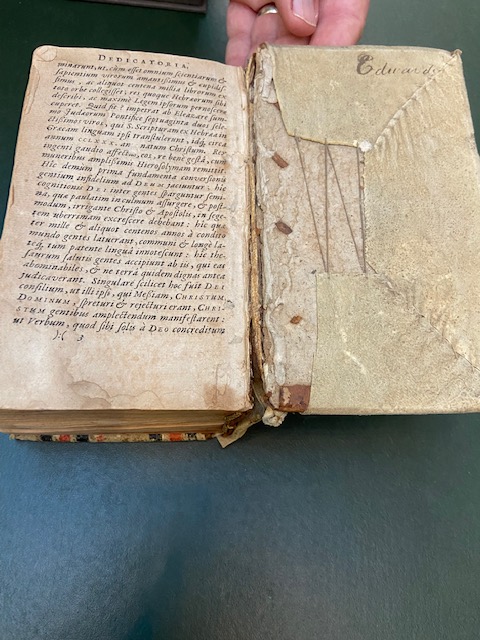 DEDICATORIA.
minarunt, ut, cùm esset omnium scientiarum &
sapientum virorum amantissimus & cupidis-
simus, ac aliquot centena millia librorum ex
toto orbe collegisset, res quoque Hebraeorum sibi
describi, ac maximè Legem ipsorum pernoscere
cuperet. Quid fit? impetrat ab Eleazare sum-
mo Judaeorum Pontifice septuaginta duos sele-
ctissimos viros, qui S. Scripturam ex Hebraea in
Graecam linguam ipsi transtulerunt, idq́; circa
annum an natum Christum. Rex
ingenti gaudio affectus, eos, re benè gestâ, cum
muneribus amplissimis Hierosolymam remittit.
Hîc demum prima fundamenta conversionis
gentium infidelium ad DEUM jaciuntur: hîc
cognitionis DEI inter gentes sparguntur semi-
na, quae paulatim in culmum assurgere, & post-
modum irrigante Christo & Apostolis, in sege-
tem uberrimam excrescere debebant: hîc qua-
ter mille & aliquot centenos annos à condito
mundo gentes latuerant, communi & longè la-
teq́; tum patente linguâ innotescunt: hîc the-
saurum salutis gentes accipiunt ab iis, qui eas
abominabiles, & ne terrâ quidem dignas antea
judicaverant. Singulare scilicet hoc fuit DEI
consilium, ut illi ipsi, qui Messiam, CHRISTUM,
DOMINUM, spreturi & rejecturi erant, CHRI-
STUM gentibus amplectendum manifestarent:
ut Verbum, quod sibi solis à DEO concreditum
)( 3
Edwards